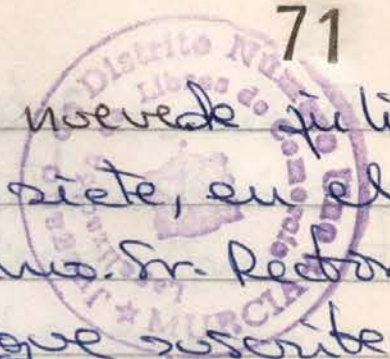 71
nueve de juli
siete, en el
mo. Sr. Rector
que suscribe
Distrito Núm
Libros de Comercio
MURCIA